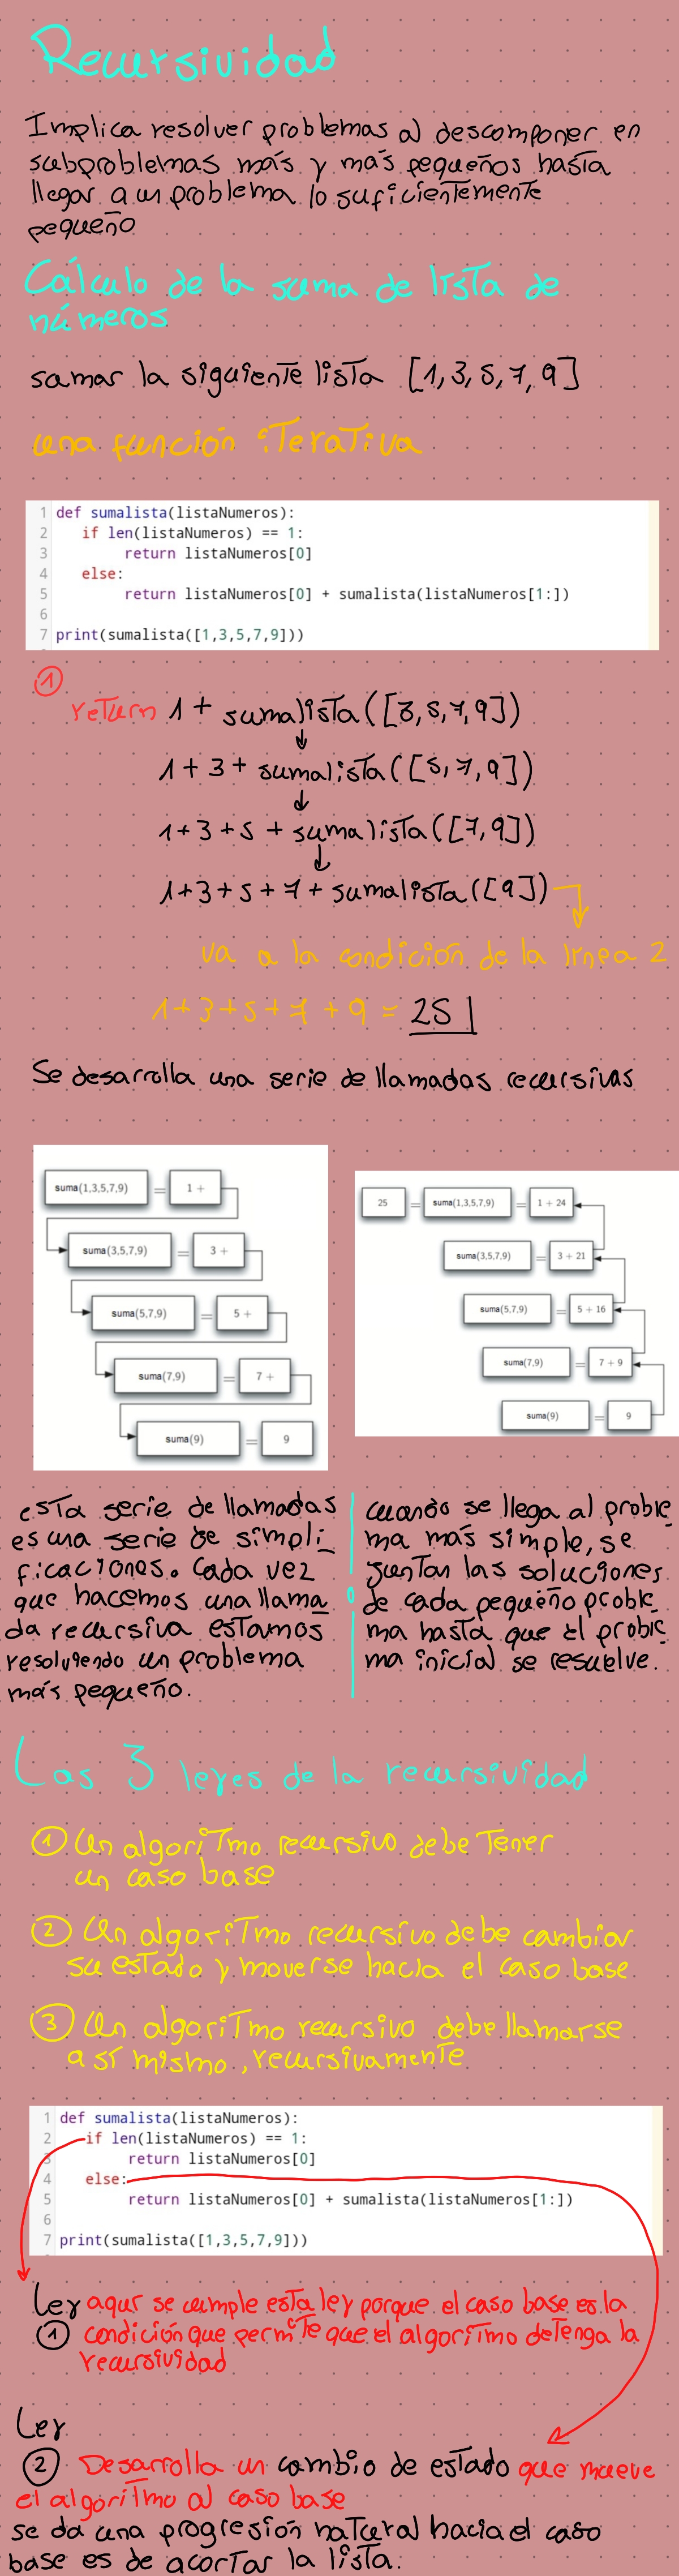 Recursividad
Implica resolver problemas al descomponer en
subproblemas más y más pequeños hasta
llegar a un problema lo suficientemente
pequeño
Cálculo de la suma de lista de
números
sumar la siguiente lista [1,3,5,7,9]
una función iterativa
1 def sumalista(listaNumeros):
2 if len(listaNumeros) == 1:
3 return listaNumeros[0]
4 else:
5 return listaNumeros[0] + sumalista(listaNumeros[1:])
6
7 print(sumalista([1,3,5,7,9]))
1
return 1 + sumalista([3,5,7,9])
1 + 3 + sumalista([5,7,9])
1+3+5 + sumalista([7,9])
1+3+5+7+ sumalista([9])
va a la condición de la línea 2
1+3+5+7+9 = 25
Se desarrolla una serie de llamadas recursivas
suma(1,3,5,7,9) = 1 +
suma(3,5,7,9) = 3 +
suma(5,7,9) = 5 +
suma(7,9) = 7 +
suma(9) = 9
25 = suma(1,3,5,7,9) = 1 + 24
suma(3,5,7,9) = 3 + 21
suma(5,7,9) = 5 + 16
suma(7,9) = 7 + 9
suma(9) = 9
esta serie de llamadas
es una serie de simpli_
ficaciones. Cada vez
que hacemos una llama_
da recursiva estamos
resolviendo un problema
más pequeño.
cuando se llega al proble_
ma más simple, se
juntan las soluciones
de cada pequeño proble_
ma hasta que el proble_
ma inicial se resuelve.
Las 3 leyes de la recursividad
1 Un algoritmo recursivo debe tener
un caso base
2 Un algoritmo recursivo debe cambiar
su estado y moverse hacia el caso base
3 Un algoritmo recursivo debe llamarse
a sí mismo, recursivamente
1 def sumalista(listaNumeros):
2 if len(listaNumeros) == 1:
3 return listaNumeros[0]
4 else:
5 return listaNumeros[0] + sumalista(listaNumeros[1:])
6
7 print(sumalista([1,3,5,7,9]))
Ley aquí se cumple esta ley porque el caso base es la
1 condición que permite que el algoritmo detenga la
recursividad
Ley
2 Desarrolla un cambio de estado que mueve
el algoritmo al caso base
se da una progresión natural hacia el caso
base es de acortar la lista.